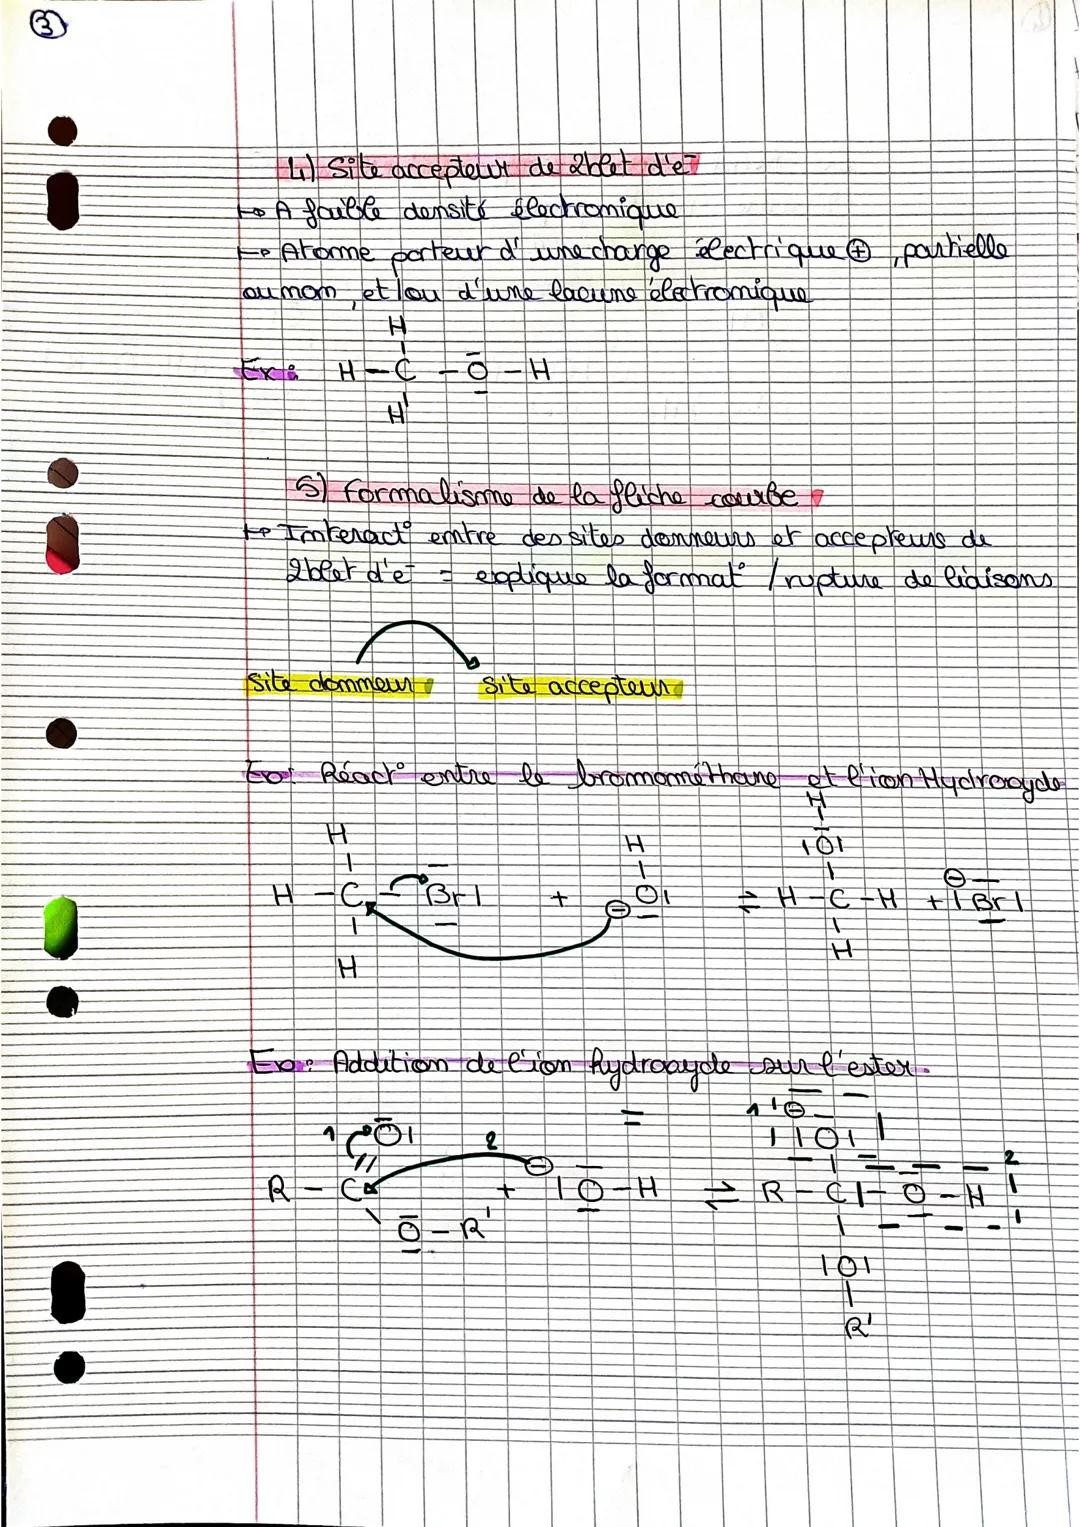 3
4) Site accepteur de 2blet d'e-
↳ A faible densité électronique
↳ Atome porteur d'une charge électrique ⊕, partielle
ou non, et/ou d'une lacune électronique
H
Ex: H - C - O - H
H
5) Formalisme de la flèche courbe
↳ Interact° entre des sites donneurs et accepteurs de
2blet d'e- = explique la format° / rupture de liaisons
Site donneur Site accepteur
Ex: Réact° entre le bromométhane et l'ion Hydroxyde
H H H
O
H - C - Br + ⊖ O ⇌ H - C - H + ⊖ Br
H H
Ex: Addition de l'ion hydroxyde sur l'ester.
1 O 2 1 ⊖ O 2
R - C + ⊖ O - H ⇌ R - C - O - H
O - R' O
R'